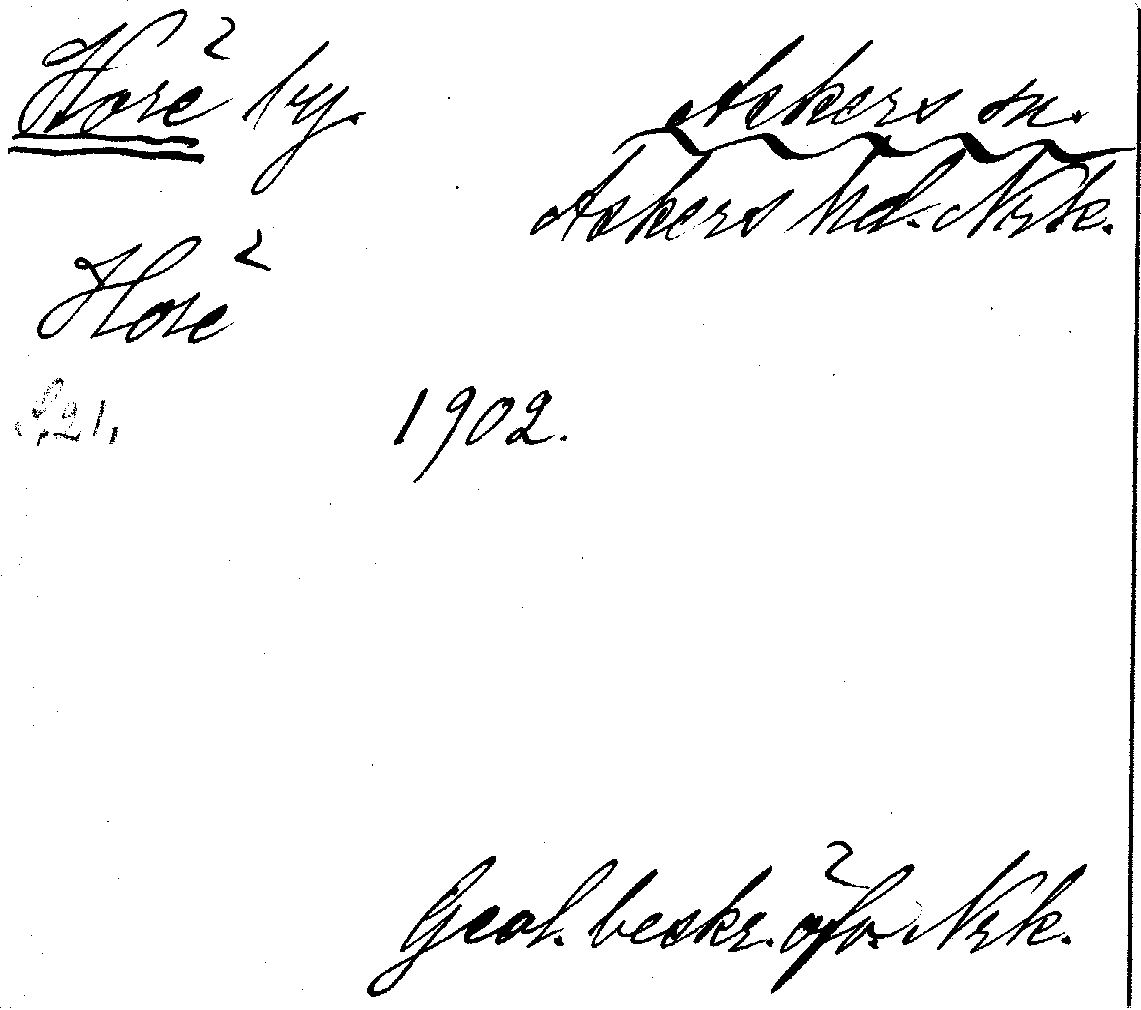 Höre by. Askers sn.
Askers hd. Nrk.
Höre
S. 21, 1902.
Geol. beskr. öfv. Nrk.